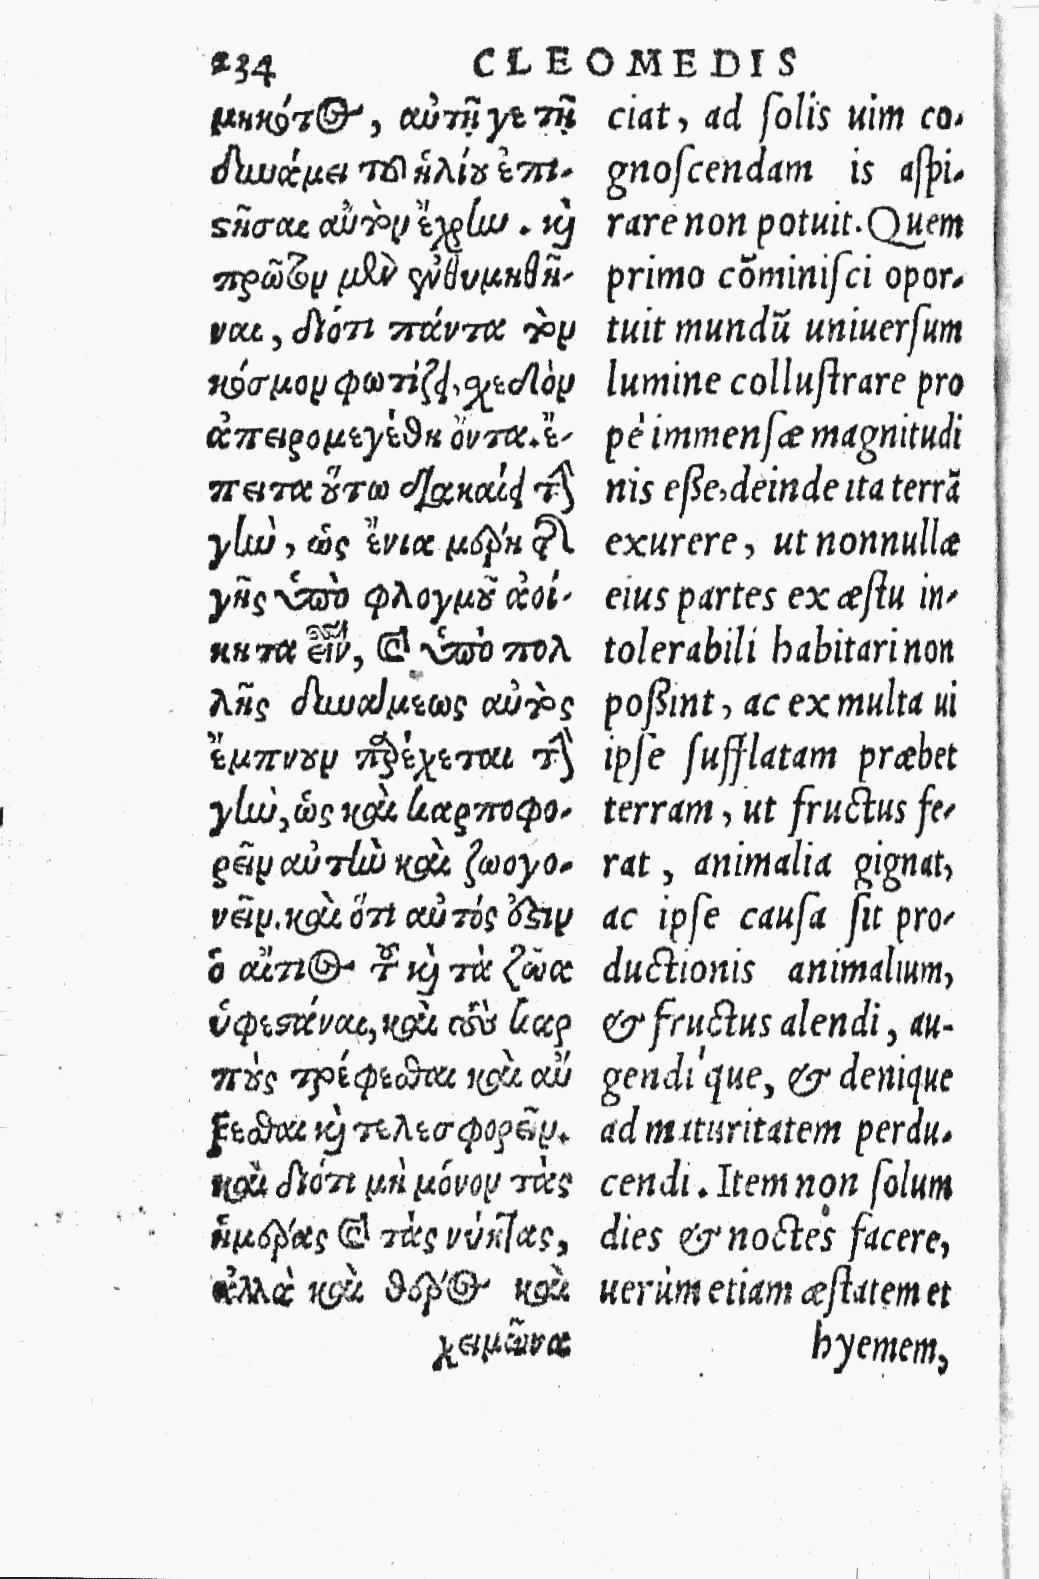 234 CLEOMEDIS
μηκότος, αὐτῇ γε τῇ
δυνάμει τοῦ ἡλίου ἐπι-
στῆσαι αὐτὸν ἐχρῆν. καὶ
πρῶτον μὲν ἐνθυμηθῆ-
ναι, διότι πάντα τὸν
κόσμον φωτίζει, σχεδὸν
ἀπειρομεγέθη ὄντα. ἔ-
πειτα οὕτω διακαίει τὴν
γῆν, ὡς ἔνια μέρη τῆς
γῆς ὑπὸ φλογμοῦ ἀοί-
κητα εἶναι, καὶ ὑπὸ πολ
λῆς δυνάμεως αὐτὸς
ἔμπνουν παρέχεται τὴν
γῆν, ὡς καὶ καρποφο-
ρεῖν αὐτὴν καὶ ζωογο-
νεῖν. καὶ ὅτι αὐτός ἐστιν
ὁ αἴτιος τοῦ καὶ τὰ ζῶα
ὑφεστάναι, καὶ τοὺς καρ
ποὺς τρέφεσθαι καὶ αὔ
ξεσθαι καὶ τελεσφορεῖν.
καὶ διότι μὴ μόνον τὰς
ἡμέρας καὶ τὰς νύκτας,
ἀλλὰ καὶ θέρος καὶ
χειμῶνα
ciat, ad ſolis uim co-
gnoſcendam is aſpi-
rare non potuit. Quem
primo cōminiſci opor-
tuit mundū uniuerſum
lumine colluſtrare pro
pè immenſæ magnitudi
nis eße, deinde ita terrā
exurere, ut nonnullæ
eius partes ex æſtu in-
tolerabili habitari non
poßint, ac ex multa ui
ipſe ſufflatam præbet
terram, ut fructus fe-
rat, animalia gignat,
ac ipſe cauſa ſit pro-
ductionis animalium,
& fructus alendi, au-
gendi'que, & denique
ad maturitatem perdu-
cendi. Item non ſolum
dies & noctes facere,
uerùm etiam æſtatem et
hyemem,